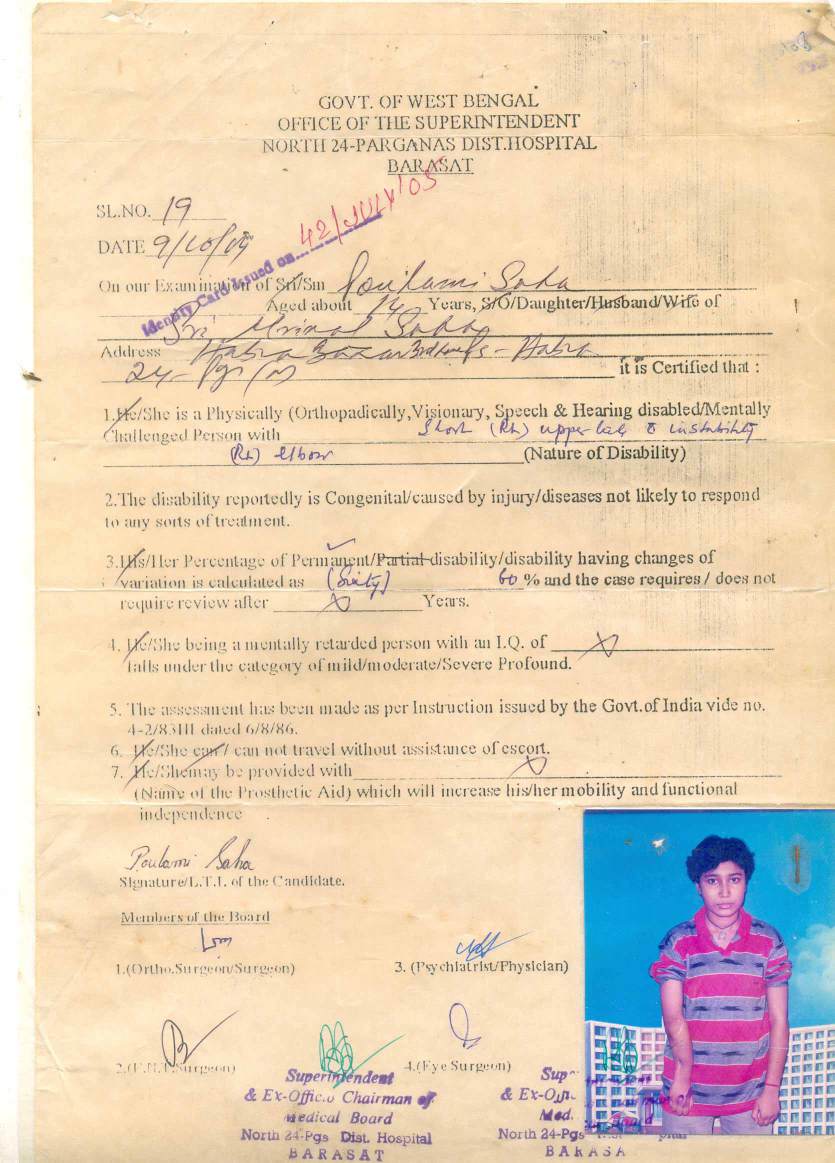 GOVT. OF WEST BENGAL
OFFICE OF THE SUPERINTENDENT
NORTH 24-PARGANAS DIST.HOSPITAL
BARASAT
SL.NO. 19
42/JULY'05
DATE 9/10/04
Identity Card Issued on
On our Examination of Sri/Sm Poulami Saha
Aged about 14 Years, S/O/Daughter/Husband/Wife of
Sri Mrinal Saha
Address Habra Bazar - Habra
24-Pgs (N) it is Certified that :
1.He/She is a Physically (Orthopadically,Visionary, Speech & Hearing disabled/Mentally
Challenged Person with Short (Rt) upper limb instability
(Rt) elbow (Nature of Disability)
2.The disability reportedly is Congenital/caused by injury/diseases not likely to respond
to any sorts of treatment.
3.His/Her Percentage of Permanent/Partial disability/disability having changes of
variation is calculated as (Sixty) 60 % and the case requires / does not
require review after X Years.
4. He/She being a mentally retarded person with an I.Q. of X
falls under the category of mild/moderate/Severe Profound.
5. The assessment has been made as per Instruction issued by the Govt.of India vide no.
4-2/83III dated 6/8/86.
6. He/She can / can not travel without assistance of escort.
7. He/Shemay be provided with X
(Name of the Prosthetic Aid) which will increase his/her mobility and functional
independence .
Poulami Saha
Signature/L.T.I. of the Candidate.
Members of the Board
1.(Ortho.Surgeon/Surgeon) 3. (Psychiatrist/Physician)
2.(E.N.T.Surgeon) 4.(Eye Surgeon)
Superintendent
& Ex-Officio Chairman of
Medical Board
North 24-Pgs Dist. Hospital
BARASAT
Sup
& Ex-
Med.
North 24-Pgs
BARASA